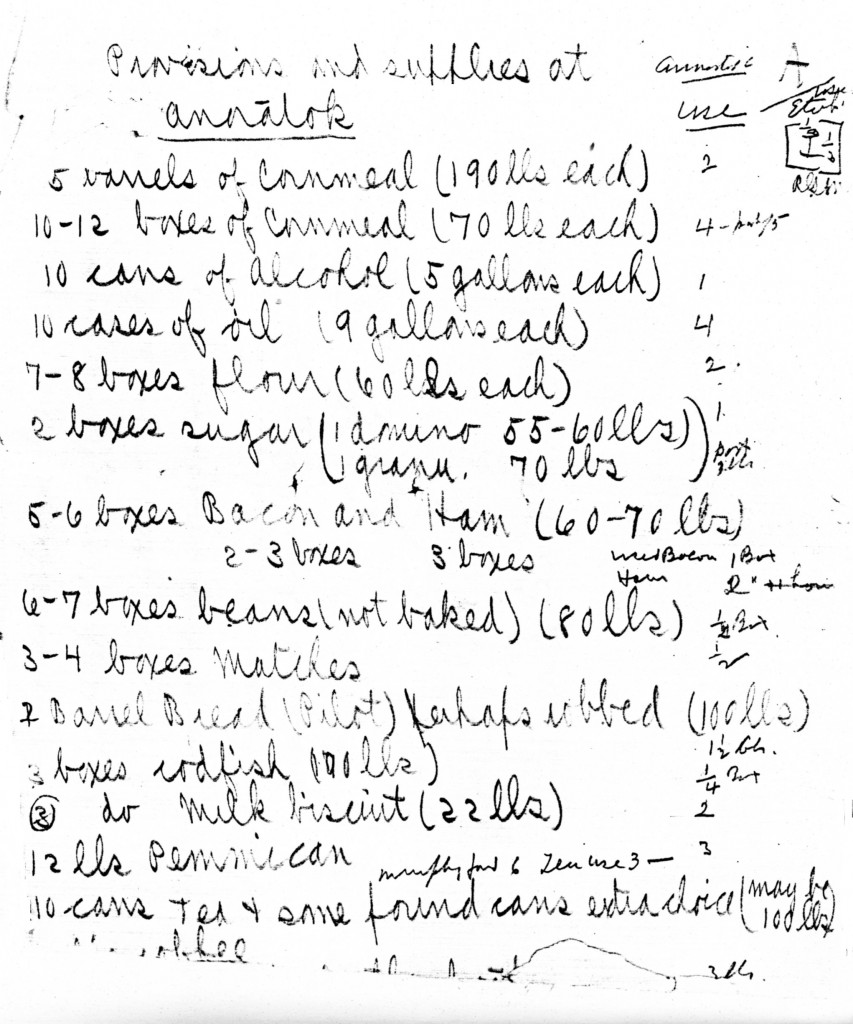 Provisions and supplies at A
anoratok use
5 barrels of Cornmeal (190 lbs each) 2
10-12 boxes of Cornmeal (70 lbs each) 4 -
10 cans of alcohol (5 gallons each) 1
10 cases of oil (9 gallons each) 4
7-8 boxes flour (60 lbs each) 2.
2 boxes sugar (1 domino 55-60 lbs) 1.
1 granu. 70 lbs
5-6 boxes Bacon and Ham (60-70 lbs)
2-3 boxes 3 boxes Bacon 1 Box
Ham 2 "
6-7 boxes beans (not baked) (80 lbs) 1/2
3-4 boxes Matches 1/2
Barrel Bread (Pilot) perhaps robbed (100 lbs)
1 1/2
3 boxes codfish (70 lbs) 1/4
3 do Milk biscuit (22 lbs) 2
12 lbs Pemmican 6 use 3 - 3
10 cans Tea & some pound cans extra choice (may be
100 lbs